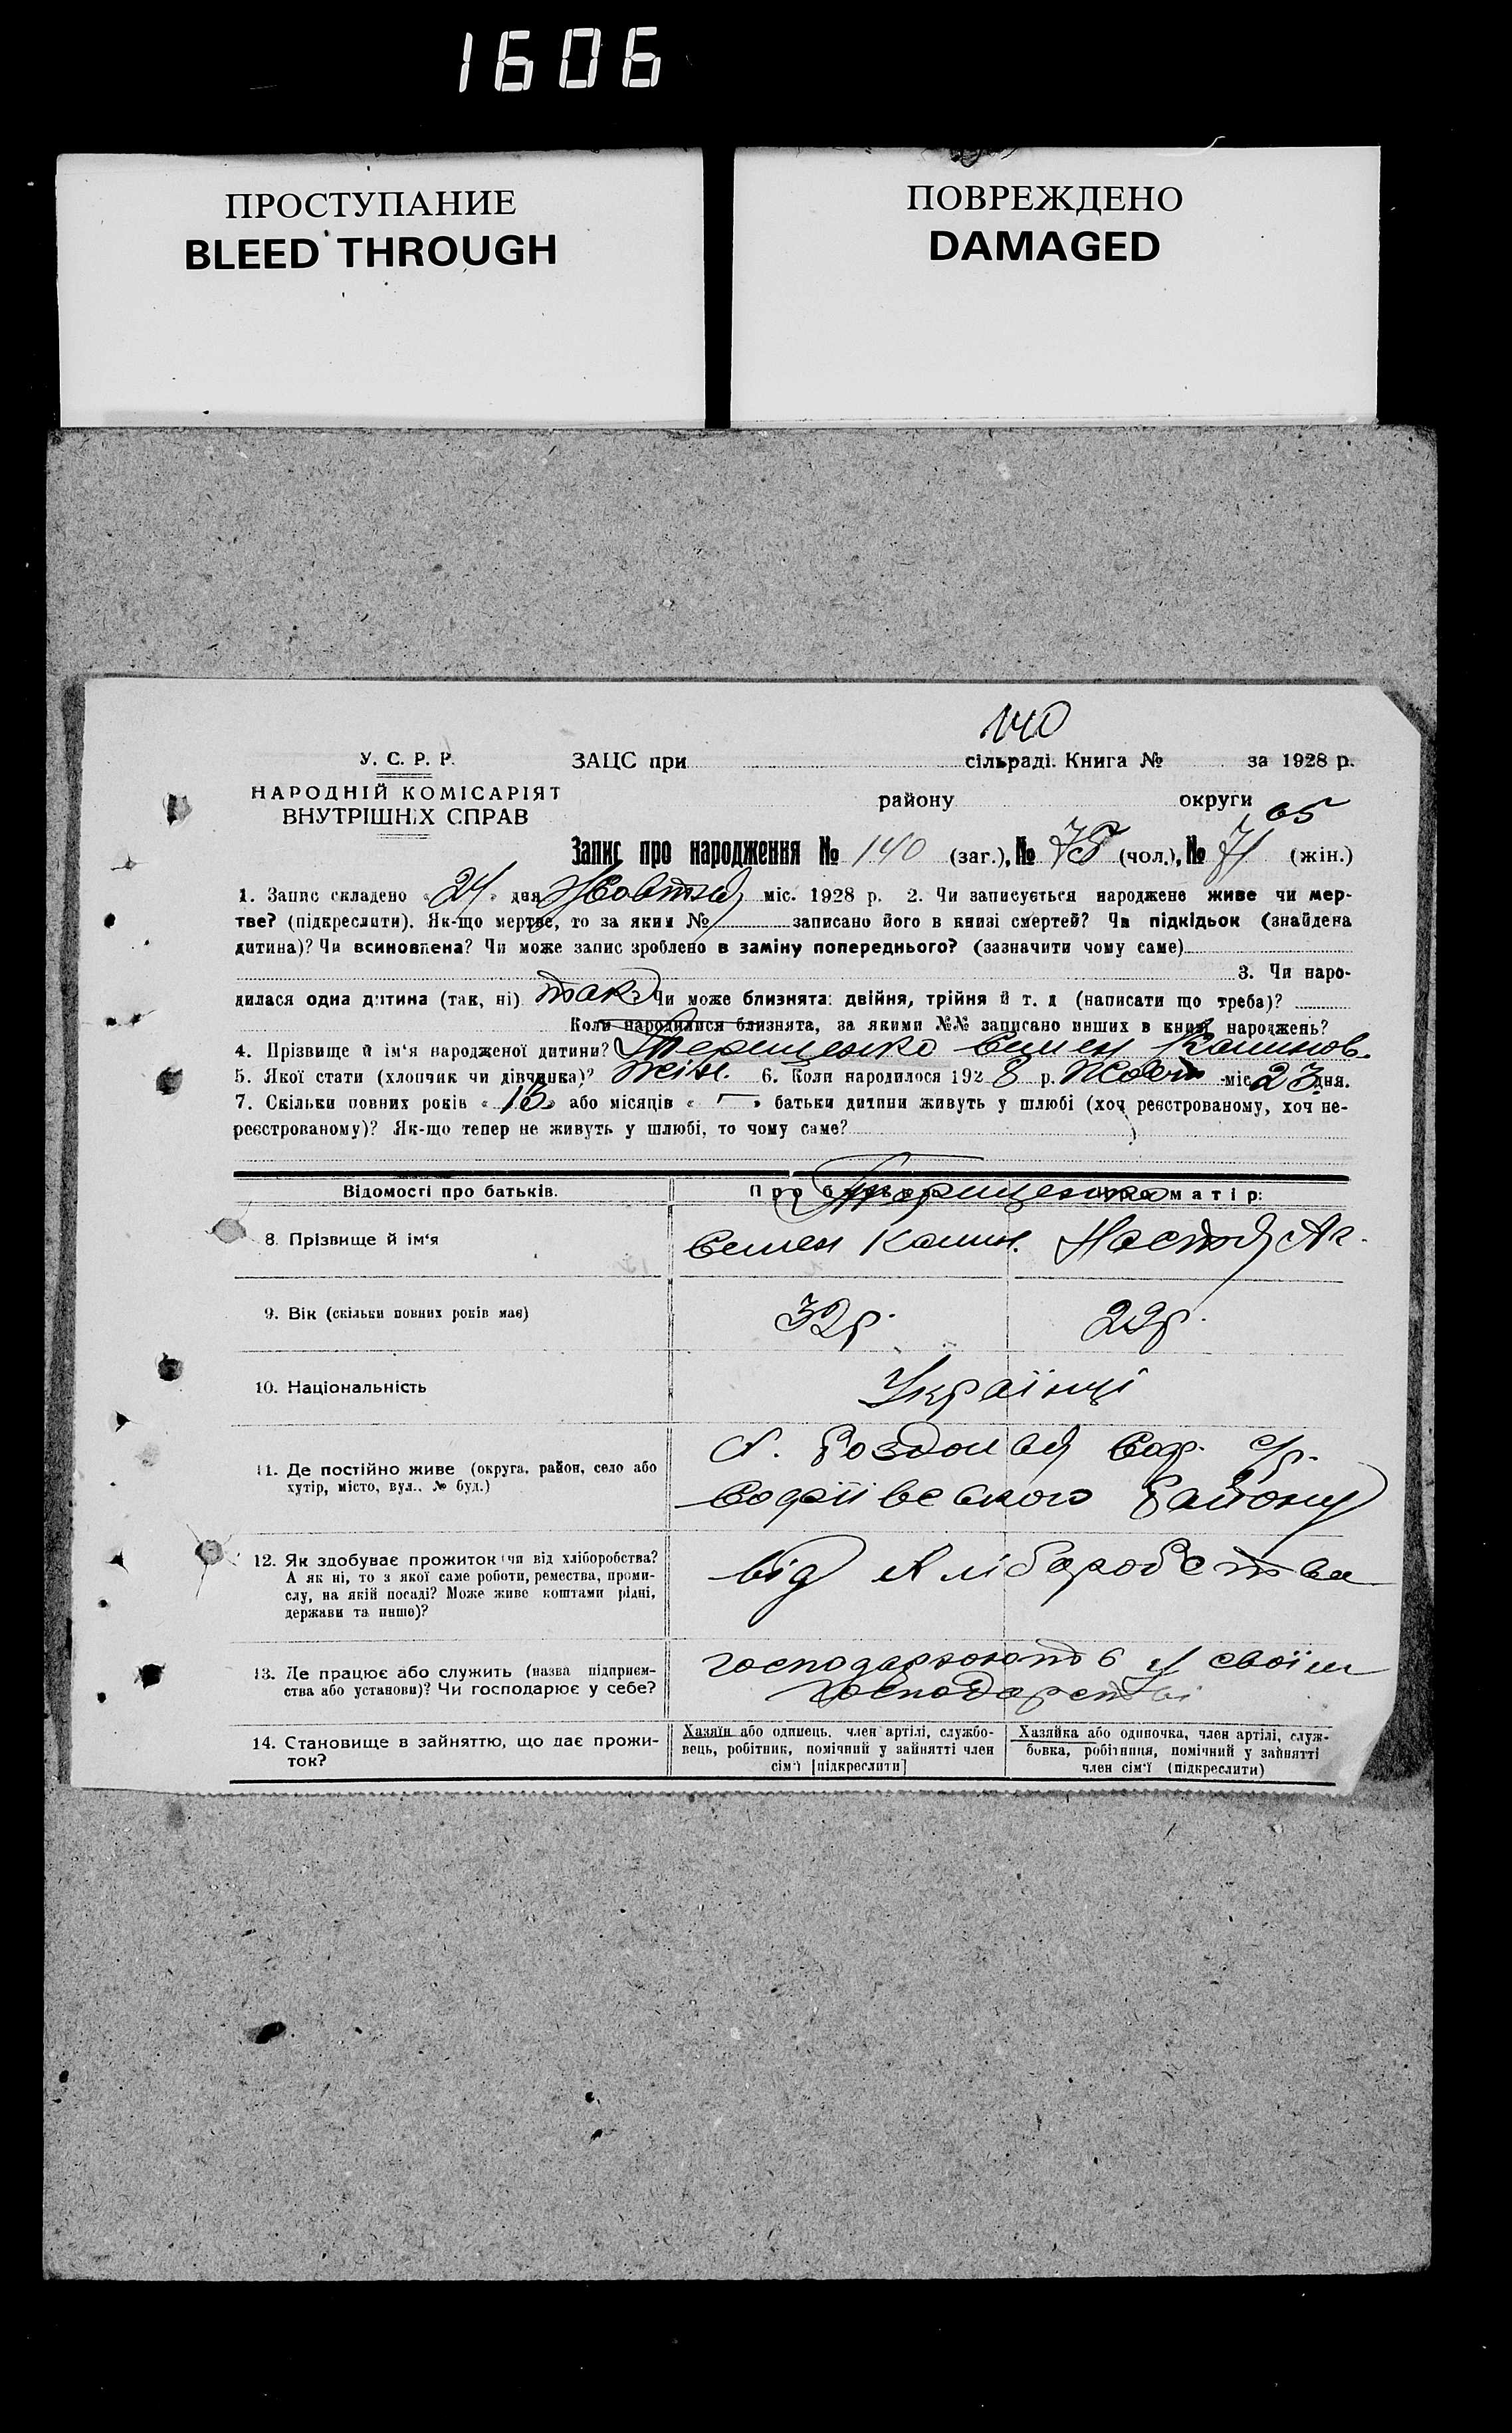 1606
ПРОСТУПАНИЕ
BLEED THROUGH
ПОВРЕЖДЕНО
DAMAGED
140
У. С. Р. Р. ЗАЦС при сільраді. Книга № за 1928 р.
НАРОДНІЙ КОМІСАРІЯТ району округи
ВНУТРІШНІХ СПРАВ 65
Запис про народження № 140 (заг.), № 75 (чол.), № 71 (жін.)
1. Запис складено „24" дня Жовтня міс. 1928 р. 2. Чи записується народжене живе чи мер-
тве? (підкреслити). Як-що мертве, то за яким № записано його в книзі смертей? Чи підкідьок (знайдена
дитина)? Чи всиновлена? Чи може запис зроблено в заміну попереднього? (зазначити чому саме)
3. Чи наро-
дилася одна дитина (так, ні) так Чи може близнята: двійня, трійня й т. д (написати що треба)?
Коли народилися близнята, за якими №№ записано инших в книзі народжень?
4. Прізвище й ім'я народженої дитини? Терещенко Семен Калинов.
5. Якої стати (хлопчик чи дівчинка)? жін. 6. Коли народилося 1928 р. Жовт міс 23 дня.
7. Скільки повних років « 13 » або місяців « — » батьки дитини живуть у шлюбі (хоч реєстрованому, хоч не-
реєстрованому)? Як-що тепер не живуть у шлюбі, то чому саме?
Відомості про батьків. Про батька: Про матір:
Терещенко
8. Прізвище й ім'я Семен Калин. Настя Аг.
9. Вік (скільки повних років має) 32 р. 29 р.
10. Національність Українці
11. Де постійно живе (округа, район, село або
хутір, місто, вул., № буд.)
с. Роздолля с/р.
Софіївського Району
12. Як здобуває прожиток чи від хліборобства?
А як ні, то з якої саме роботи, ремества, проми-
слу, на якій посаді? Може живе коштами рідні,
держави та инше)?
від хліборобства
13. Де працює або служить (назва підприєм-
ства або установи)? Чи господарює у себе?
господарюють у своїм
господарстві
14. Становище в зайняттю, що дає прожи-
ток?
Хазяїн або одинець, член артілі, службо-
вець, робітник, помічний у зайнятті член
сім'ї [підкреслити]
Хазяйка або одиночка, член артілі, служ-
бовка, робітниця, помічний у зайнятті
член сім'ї (підкреслити)